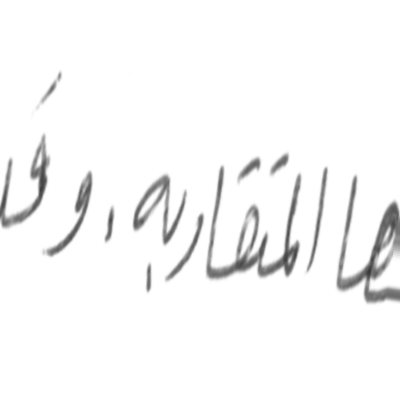 ها المتقاربه، وفا